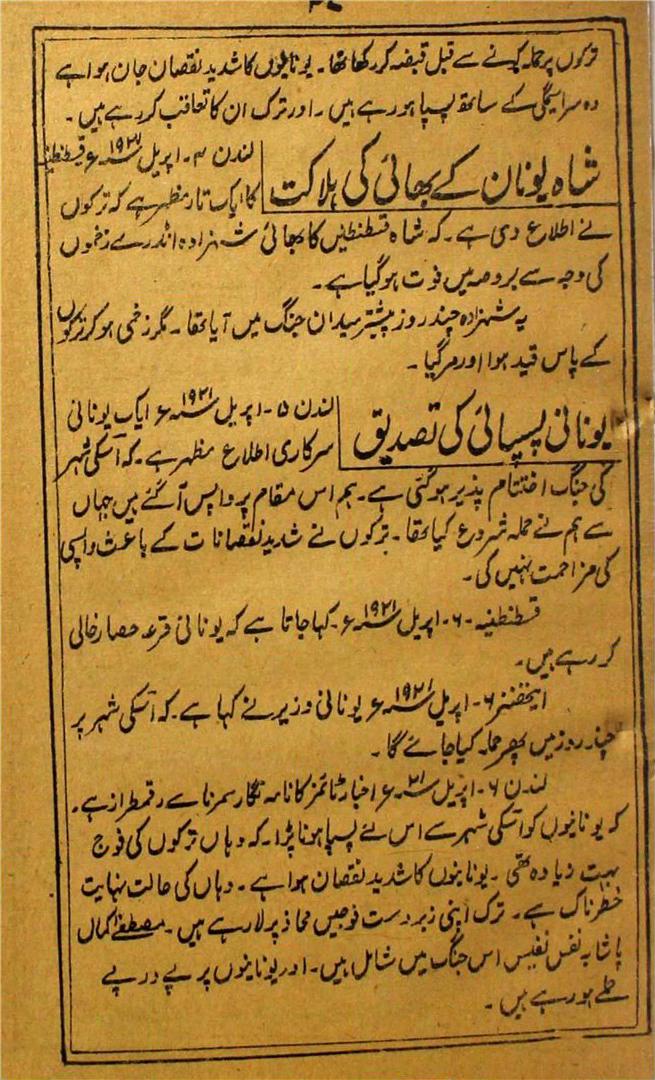 ترکوں پر حملہ کرنے سے قبل قبضہ کر رکھا تھا۔ یونانیوں کا شدید نقصان جان ہوا ہے
وہ سراسیمگی کے ساتھ پسپا ہو رہے ہیں۔ اور ترک ان کا تعاقب کر رہے ہیں۔
شاہ یونان کے بھائی کی ہلاکت
لندن ۴۔ اپریل ۱۹۲۱ء قسطنطنیہ
کا ایک تار مظہر ہے کہ ترکوں
نے اطلاع دی ہے۔ کہ شاہ قسطنطین کا بھائی شہزادہ انڈرے زخموں
کی وجہ سے بروصہ میں فوت ہو گیا ہے۔
یہ شہزادہ چند روز پیشتر میدان جنگ میں آیا تھا۔ مگر زخمی ہو کر ترکوں
کے پاس قید ہوا اور مر گیا۔
یونانی پسپائی کی تصدیق
لندن ۵۔ اپریل ۱۹۲۱ء ایک یونانی
سرکاری اطلاع مظہر ہے۔ کہ آسکی شہر
کی جنگ اختتام پذیر ہو گئی ہے۔ ہم اس مقام پر واپس آ گئے ہیں جہاں
سے ہم نے حملہ شروع کیا تھا۔ ترکوں نے شدید نقصانات کے باعث واپسی
کی مزاحمت نہیں کی۔
قسطنطنیہ۔ ۶۔ اپریل ۱۹۲۱ء۔ کہا جاتا ہے کہ یونانی قرہ حصار خالی
کر رہے ہیں۔
ایتھنز ۶۔ اپریل ۱۹۲۱ء یونانی وزیر نے کہا ہے۔ کہ آسکی شہر پر
چند روز میں پھر حملہ کیا جائے گا۔
لندن ۶۔ اپریل ۲۱ء اخبار ٹائمز کا نامہ نگار سمرنا سے رقمطراز ہے۔
کہ یونانیوں کو آسکی شہر سے اس لئے پسپا ہونا پڑا۔ کہ وہاں ترکوں کی فوج
بہت زیادہ تھی۔ یونانیوں کا شدید نقصان ہوا ہے۔ وہاں کی حالت نہایت
خطرناک ہے۔ ترک اپنی زبردست فوجیں محاذ پر لا رہے ہیں۔ مصطفےٰ کمال
پاشا بہ نفس نفیس اس جنگ میں شامل ہیں۔ اور یونانیوں پر پے در پے
حملے ہو رہے ہیں۔